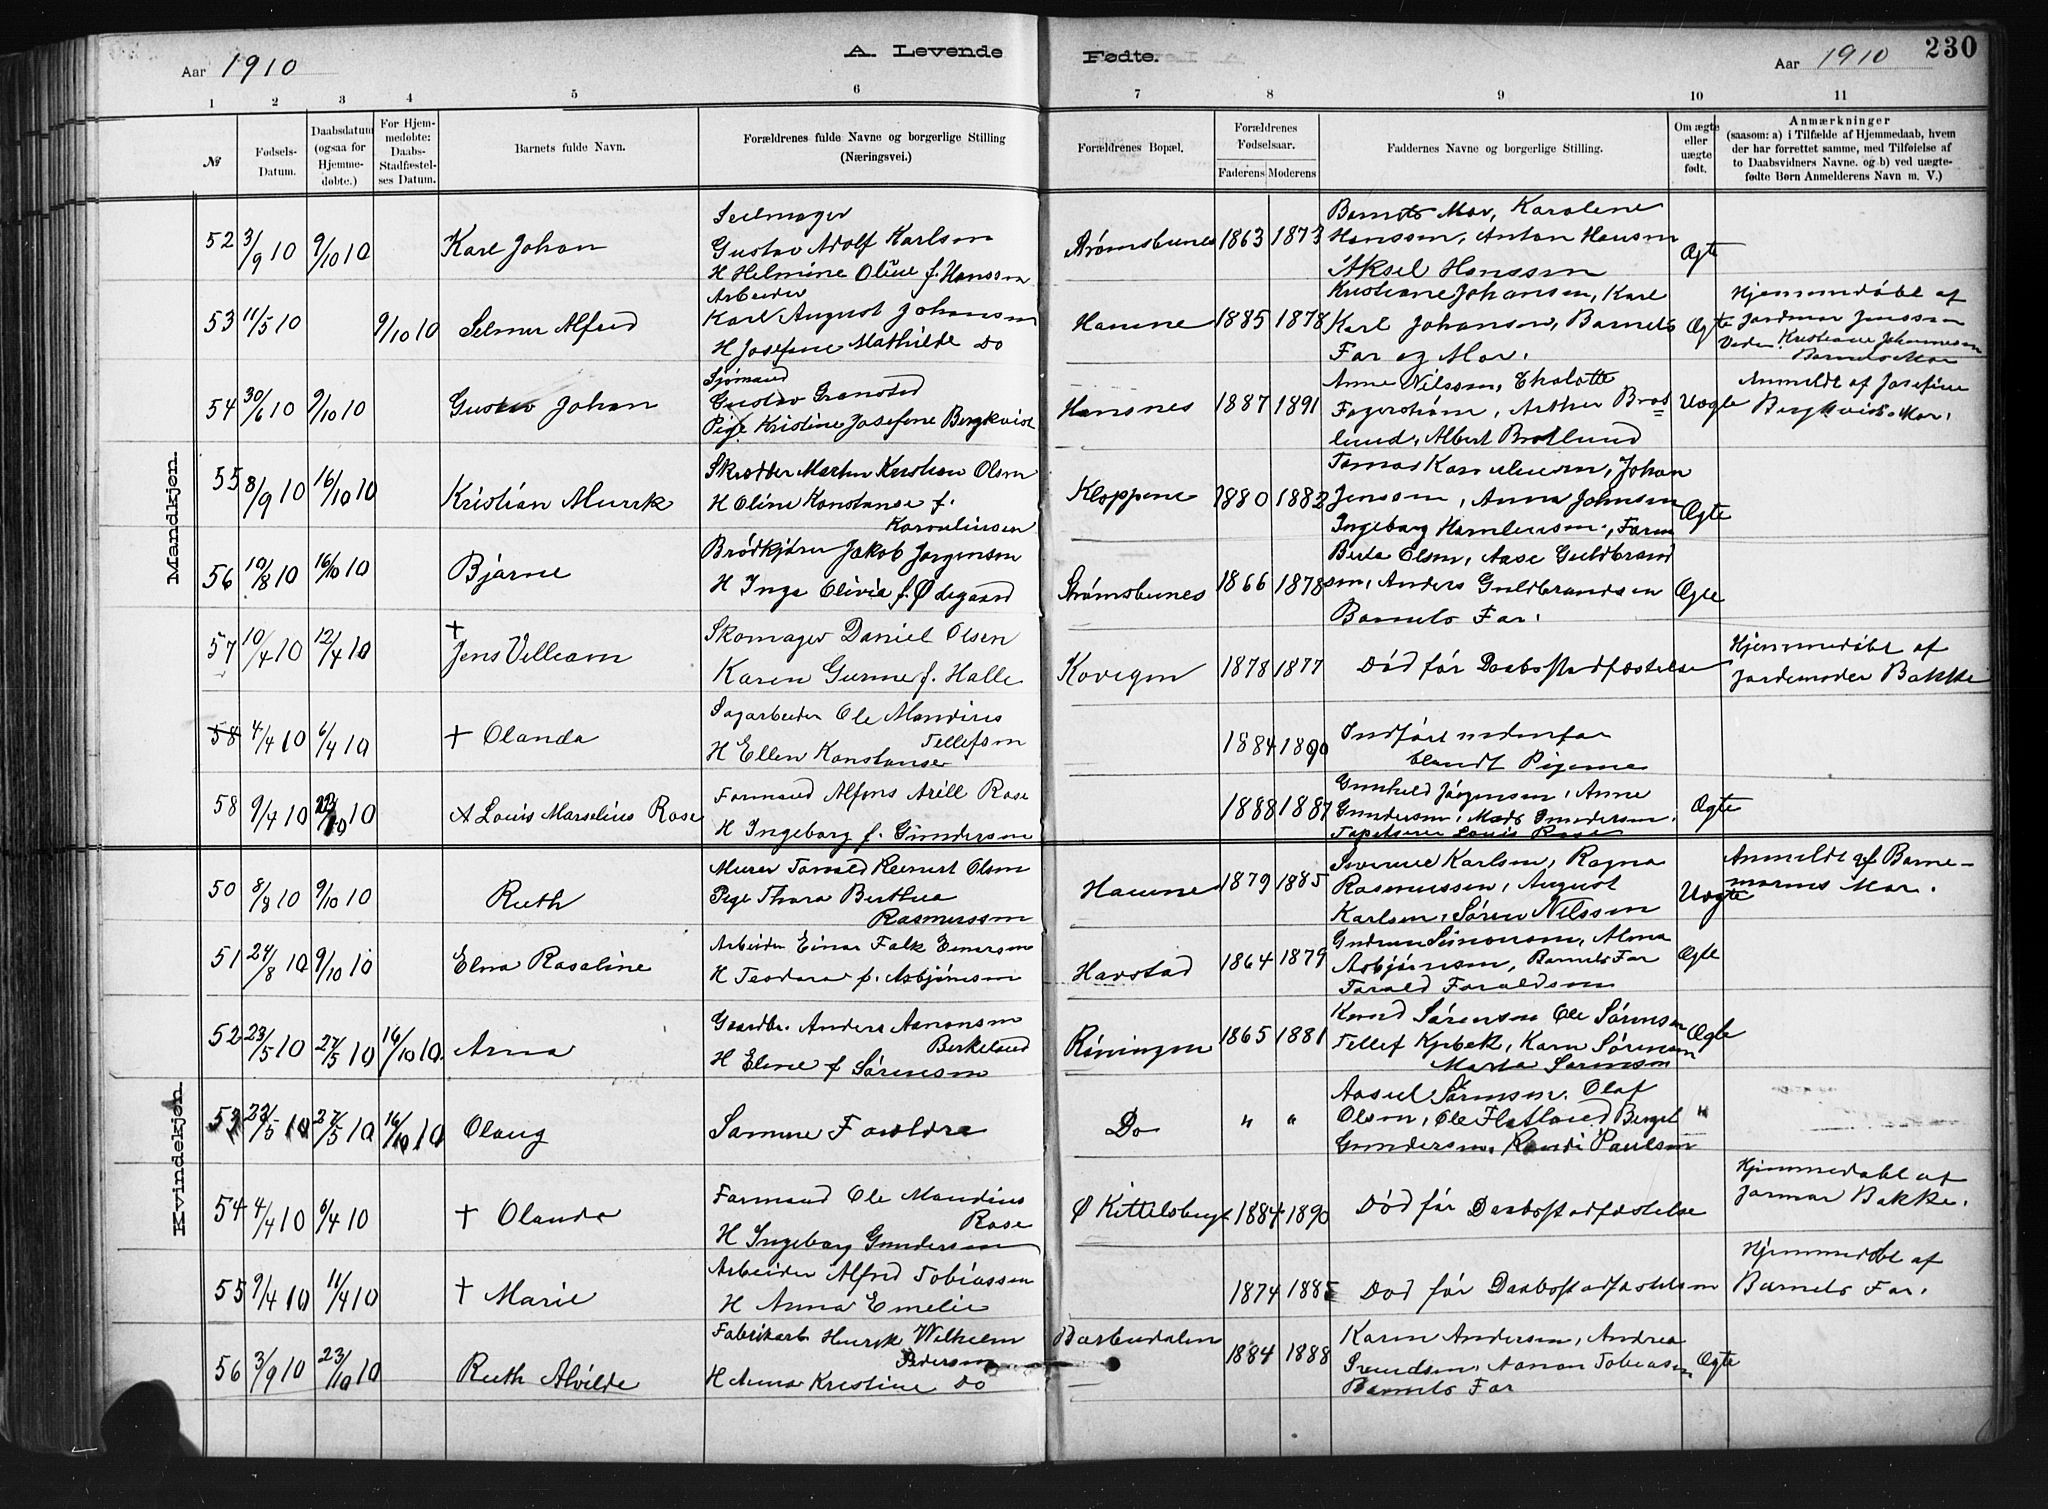 Aar 1910
A. Levende
Fødte.
Aar 1910
230
1 2 3 4 5 6 7 8 9 10 11
№
Fødsels-
Datum.
Daabsdatum
(ogsaa for
Hjemme-
døbte.)
For Hjem-
medøbte:
Daabs-
Stadfæstel-
ses Datum.
Barnets fulde Navn.
Forældrenes fulde Navne og borgerlige Stilling
(Næringsvei.)
Forældrenes Bopæl.
Forældrenes
Fødselsaar.
Faderens Moderens
Faddernes Navne og borgerlige Stilling.
Om ægte
eller
uægte
født.
Anmærkninger
(saasom: a) i Tilfælde af Hjemmedaab, hvem
der har forrettet samme, med Tilføielse af
to Daabsvidners Navne. og b) ved uægte-
fødte Børn Anmelderens Navn m. V.)
Mandkjøn.
52 3/9 10 9/10 10 Karl Johan
Seilmager
Gustav Adolf Karlsen
H Helmine Oline f. Hanssen
Strømsbunes 1863 1873
Barnets Mor, Karolene
Hanssen, Anton Hansen
Aksel Hanssen
Ægte
53 11/5 10 9/10 10 Selmer Alfred
Arbeider
Karl August Johansen
H Josefine Mathilde Do
Havne 1885 1878
Kristiane Johansen, Karl
Karl Johansen, Barnets
Far og Mor.
Ægte
Hjemmedøbt af
Jordmor Jenssen
Kristiane Johannesen
Barnets Mor
54 30/6 10 9/10 10 Gustav Johan
Sjømand
Gustav Gransted
Pige Kristine Josefine Bergkvist
Hansnes 1887 1891
Anne Nilssen, Chalotte
Fagerstrøm, Arthur Brot
lund, Albert Brotlund
Uægte
Anmeldt af Josefine
Bergkvist Mor.
55 8/9 10 16/10 10 Kristian Murrk
Skrædder Martin Kristian Olsen
H Oline Konstanse f.
Karneliusen
Kloppene 1880 1882
Tomas Karneliusen, Johan
Jenssen, Anna Johnsen
Ingeborg
Ægte
56 10/8 10 16/10 10 Bjarne
Brødkjører Jakob Jørgensen
H Inga Olivia f. Ødegaard
Strømsbunes 1866 1878
Berta Olsen, Aase Guldbrand
sen, Anders Guldbrandsen
Barnets Far.
Ægte
57 10/4 10 12/4 10 † Jens Velleam
Skomager Daniel Olsen
Karen Gurine f. Halle
1878 1877
Død før Daabsstadfæstelse
Hjemmedøbt af
Jordemoder Bakke
58 4/4 10 6/4 10 † Olanda
Sagarbeider Ole Mandius
Tellefsen
H Ellen Konstanse
1884 1890
Indført nedenfor
blandt Pigerne
58 9/4 10 10 Louis Marselius Rose
Formand Alfons Arill Rose
H Ingeborg f. Gundersen
1888 1887
Gunhild Jørgensen, Anne
Gundersen, Mads Gundersen,
Tapetserer Louis Rose
Ægte
Kvindekjøn.
50 8/8 10 9/10 10 Ruth
Murer Torvald Reinert Olsen
Pige Thora Berthea
Rasmussen
Havne 1879 1885
Severine Karlsen, Ragna
Rasmussen, August
Karlsen, Søren Nilssen
Uægte
Anmeldt af Barne-
morens Mor.
51 24/8 10 9/10 10 Elna Rosaline
Arbeider Einar Falk Einersen
H Teodora f. Asbjørnsen
Havstad 1864 1879
Gudrun Simonsen, Alma
Asbjørnsen, Barnets Far
Torald Toraldsen
Ægte
52 23/5 10 27/5 10 16/10 10 Anna
Gaardbr. Anders Aanonsen
Birkeland
H Eline f Sørensen
Røningen 1865 1881
Knud Sørensen Ole Sørensen
Tellef Kjebek, Karn Sørensen
Marta Sørensen
Ægte
53 23/5 10 27/5 10 16/10 10 Olaug
Samme Foreldre
Do " "
Aasul Sørensen, Olaf
Olsen, Ole Flatland Bergit
Gundersen, Randi Paulsen
"
54 4/4 10 6/4 10 † Olanda
Formand Ole Mandius
Rose
H Ingeborg Gundersen
Ø Kittelsbugt 1884 1890
Død før Daabsstadfæstelse
Hjemmedøbt af
Jormor Bakke.
55 9/4 10 11/4 10 † Marie
Arbeider Alfred Tobiassen
H Anna Emelie
1874 1885
Død før Daabsstadfæstelsen
Hjemmedøbt af
Barnets Far.
56 3/9 10 23/10 10 Ruth Alvilde
Fabrikarb. Henrik Wilhelm
Pedersen
H Anna Kristine Do
Barbudalen 1884 1888
Karen Andersen, Andrea
Svendsen, Aanon Tobiassen
Barnets Far
Ægte